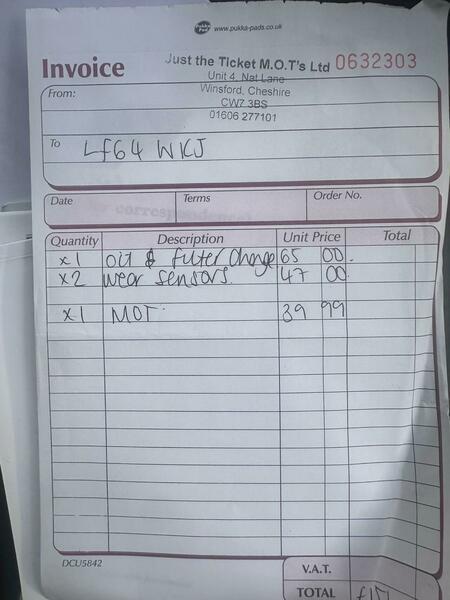 Pukka Pad www.pukka-pads.co.uk
Invoice
Just the Ticket M.O.T's Ltd 0632303
Unit 4, Nat Lane
Winsford, Cheshire
CW7 3BS
01606 277101
From:
To Lf64 WKJ
Date Terms Order No.
Quantity Description Unit Price Total
x1 oil & filter change 65 00.
x2 wear sensors. 47 00
x1 MOT. 39 99
DCU5842
V.A.T.
TOTAL £151